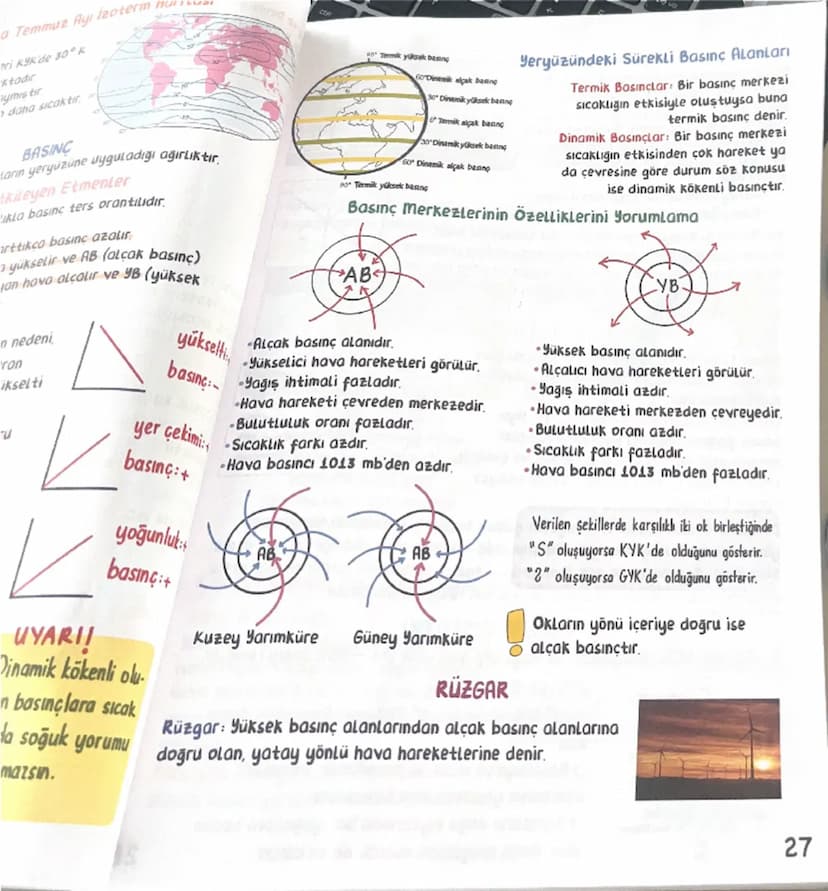 a Temmuz Ayı İzoterm Haritası
eri KYK'de 30° K
ktadır
ymıştır
daha sıcaktır.
BASINÇ
ların yeryüzüne uyguladığı ağırlıktır.
tkileyen Etmenler
ıkla basınç ters orantılıdır.
arttıkca basınc azalır.
a yükselir ve AB (alçak basınç)
yan hava alçalır ve YB (yüksek
n nedeni,
ron
ikselti
yükselti:
basınç:-
ru
yer çekimi:
basınç:+
yoğunluk:+
basınç:+
UYARI!
Dinamik kökenli olu-
n basınçlara sıcak
da soğuk yorumu
mazsın.
90° Termik yüksek basınç
60° Dinamik alçak basınç
30° Dinamik yüksek basınç
0° Termik alçak basınç
30° Dinamik yüksek basınç
60° Dinamik alçak basınç
90° Termik yüksek basınç
Yeryüzündeki Sürekli Basınç Alanları
Termik Basınçlar: Bir basınç merkezi
sıcaklığın etkisiyle oluştuysa buna
termik basınç denir.
Dinamik Basınçlar: Bir basınç merkezi
sıcaklığın etkisinden çok hareket ya
da çevresine göre durum söz konusu
ise dinamik kökenli basınçtır.
Basınç Merkezlerinin Özelliklerini Yorumlama
AB
•Alçak basınç alanıdır.
•Yükselici hava hareketleri görülür.
•Yağış ihtimali fazladır.
•Hava hareketi çevreden merkezedir.
•Bulutluluk oranı fazladır.
•Sıcaklık farkı azdır.
•Hava basıncı 1013 mb'den azdır.
YB
•Yüksek basınç alanıdır.
•Alçalıcı hava hareketleri görülür.
•Yağış ihtimali azdır.
•Hava hareketi merkezden çevreyedir.
•Bulutluluk oranı azdır.
•Sıcaklık farkı fazladır.
•Hava basıncı 1013 mb'den fazladır.
AB
Kuzey Yarımküre
AB
Güney Yarımküre
Verilen şekillerde karşılıklı iki ok birleştiğinde
"S" oluşuyorsa KYK'de olduğunu gösterir.
"2" oluşuyorsa GYK'de olduğunu gösterir.
! Okların yönü içeriye doğru ise
alçak basınçtır.
RÜZGAR
Rüzgar: Yüksek basınç alanlarından alçak basınç alanlarına
doğru olan, yatay yönlü hava hareketlerine denir.
27